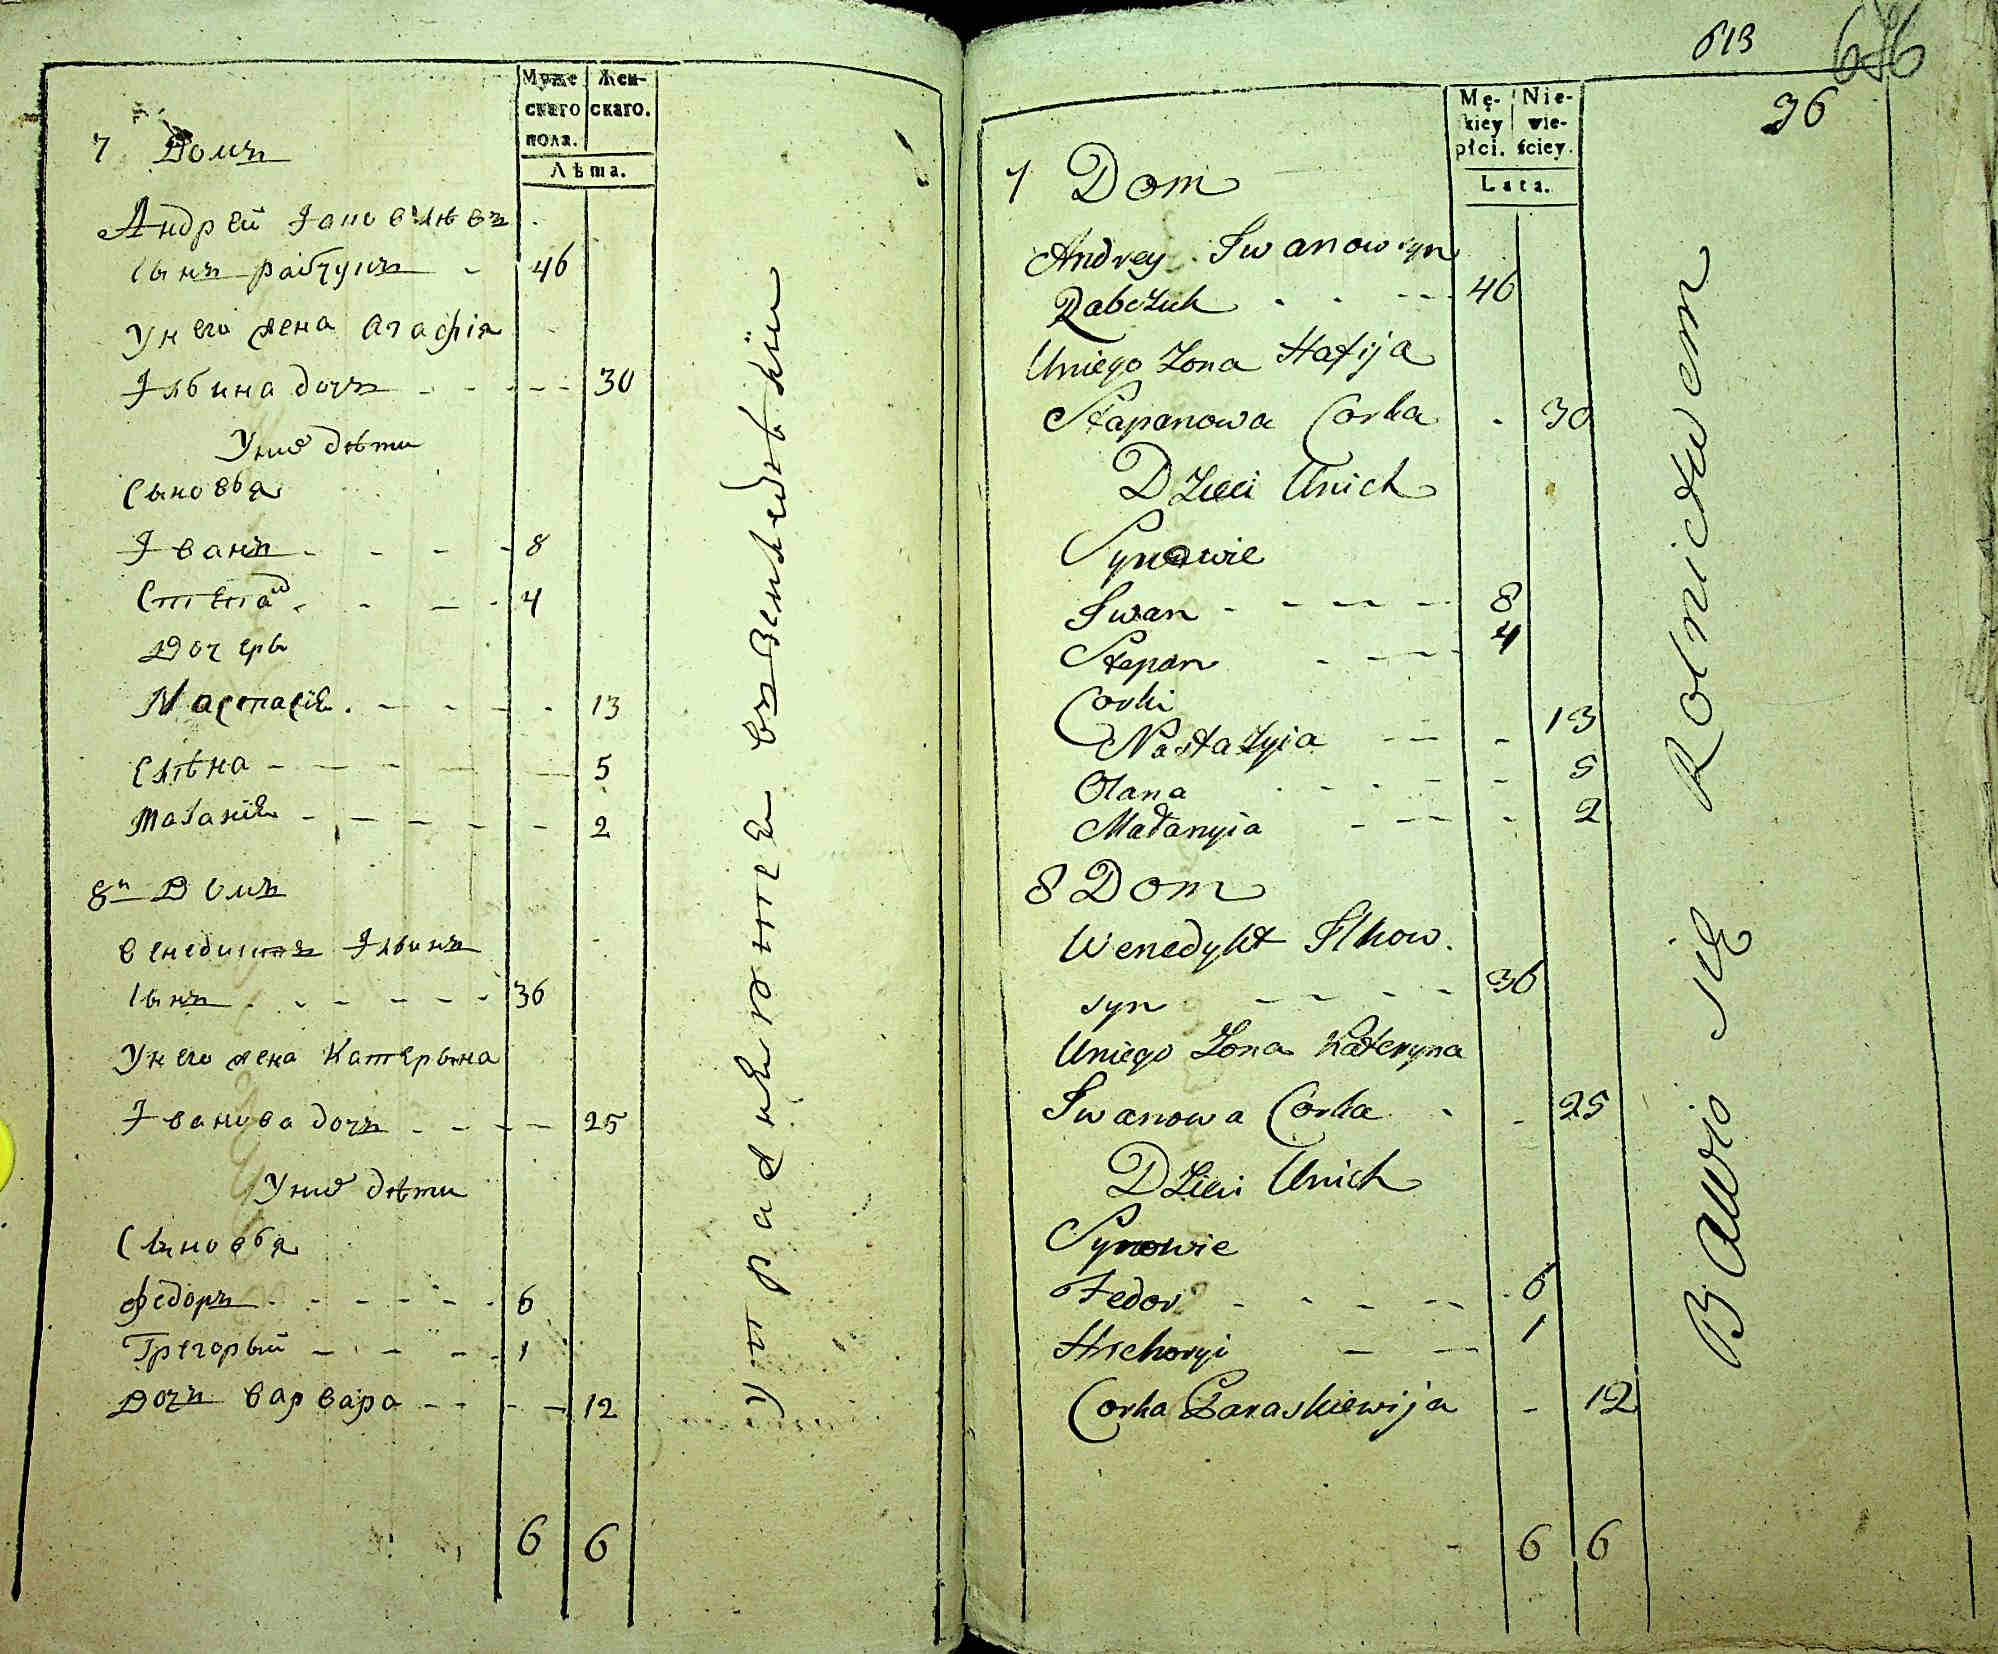 Муже
скаго
пола.
Жен-
скаго.
Лѣта.
7 Домъ
Андрей
сынъ рабчукъ - 46
Унего жена Агафія
Ильина дочъ - - - - 30
Унихъ дѣти
Сыновья
Іванъ - - - - 8
4
Дочерь
Настасія - - - - - 13
Елѣна - - - - - 5
Маланія - - - - - 2
8й Домъ
Венедиктъ Ильинъ
сынъ - - - - - 36
Унего жена Катерына
Іванова дочъ - - - - 25
Унихъ дѣти
Сыновья
Федоръ - - - - - 6
Грегорый - - - - 1
Дочъ Варвара - - - - 12
6 6
упражняются въ земледѣліи
613
36
Mę-
kiey
płci.
Nie-
wie-
ściey.
Lata.
7 Dom
Andrey Iwanow syn
Rabczuk - - - - 46
Uniego Żona Hafija
Stapanowa Corka - 30
Dzieci Unich
Synowie
Iwan - - - - - 8
Stepan - - - - 4
Corki
Nastazyia - - - 13
Olana - - - - 5
Małanyia - - - - 2
8 Dom
Wenedykt Ilkow.
syn - - - - 36
Uniego Żona Kateryna
Iwanowa Córka - - 25
Dzieci Unich
Synowie
Fedor - - - - - 6
Hrehoryi - - 1
Corka Paraskiewija - 12
- 6 6
Bawio się Rolnictwem